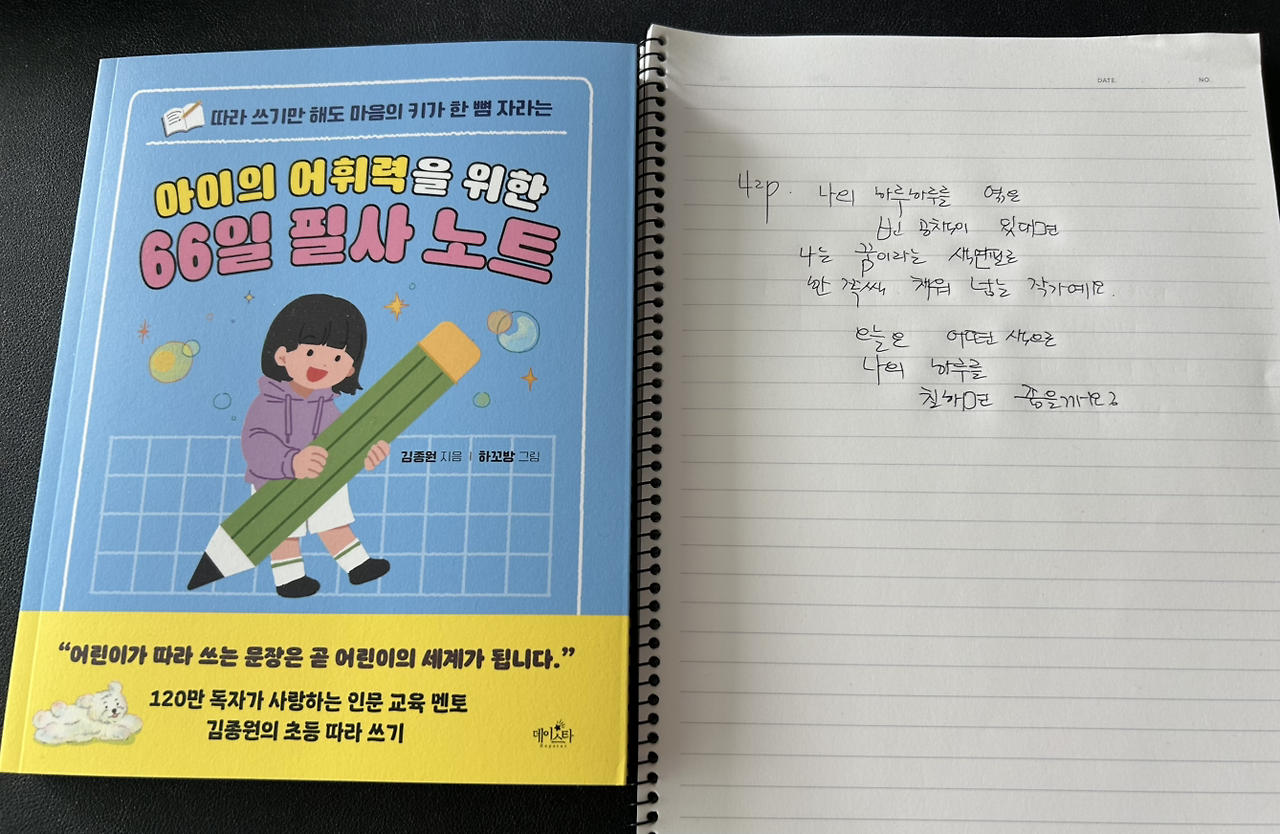 따라 쓰기만 해도 마음의 키가 한 뼘 자라는
아이의 어휘력을 위한
66일 필사 노트
김종원 지음 | 하꼬방 그림
“어린이가 따라 쓰는 문장은 곧 어린이의 세계가 됩니다.”
120만 독자가 사랑하는 인문 교육 멘토
김종원의 초등 따라 쓰기
데이스타
Daystar
DATE. NO.
42p. 나의 하루하루를 엮은
빈 공책이 있다면
나는 꿈이라는 색연필로
한 쪽씩 채워 넣는 작가예요.
오늘은 어떤 색으로
나의 하루를
칠하면 좋을까요?